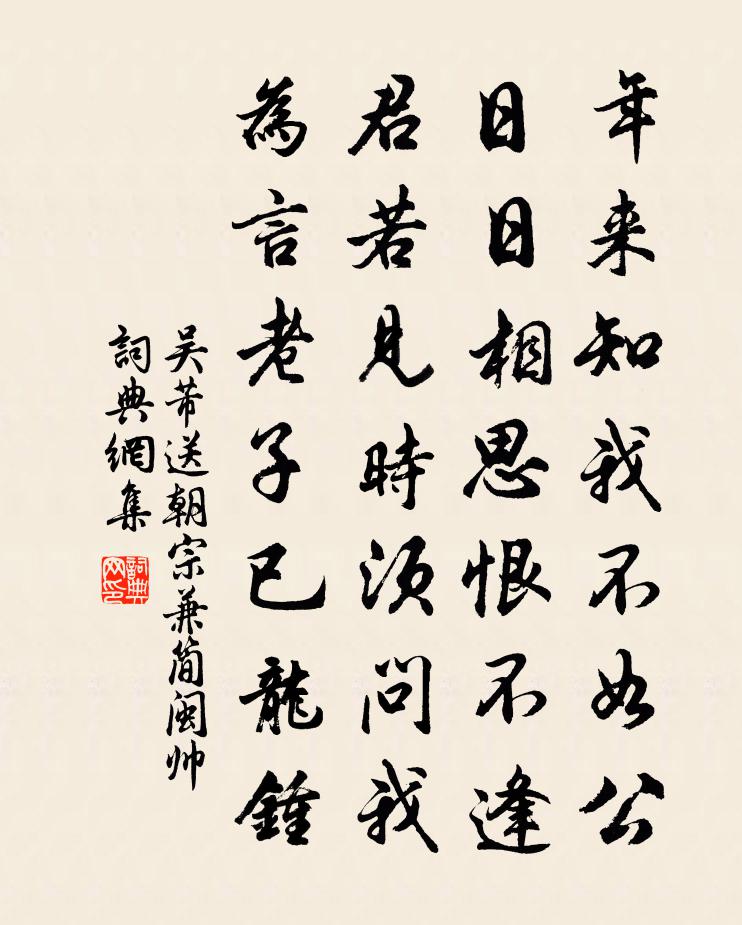 年来知我不如公
日日相思恨不逢
君若見時須問我
為言老子已龍鍾
吴芾送朝宗兼简闽帅
詞典網集
詞典网印